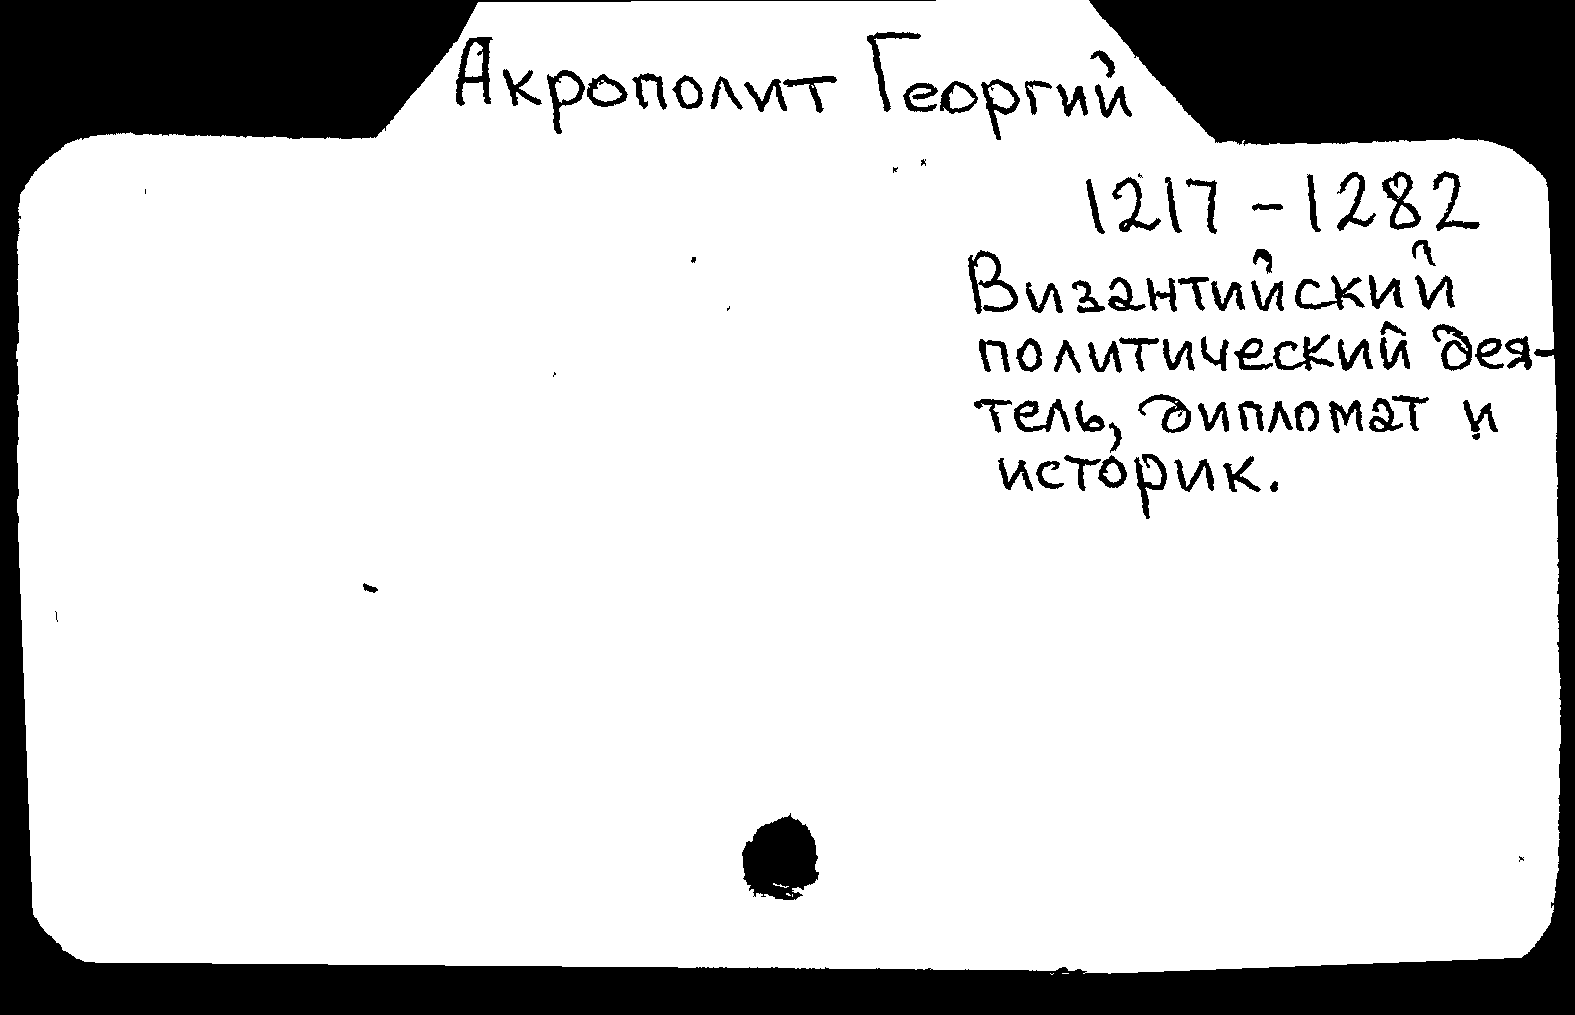 Акрополит Георгий
1217 - 1282
Византийский
политический дея-
тель, дипломат и
историк.